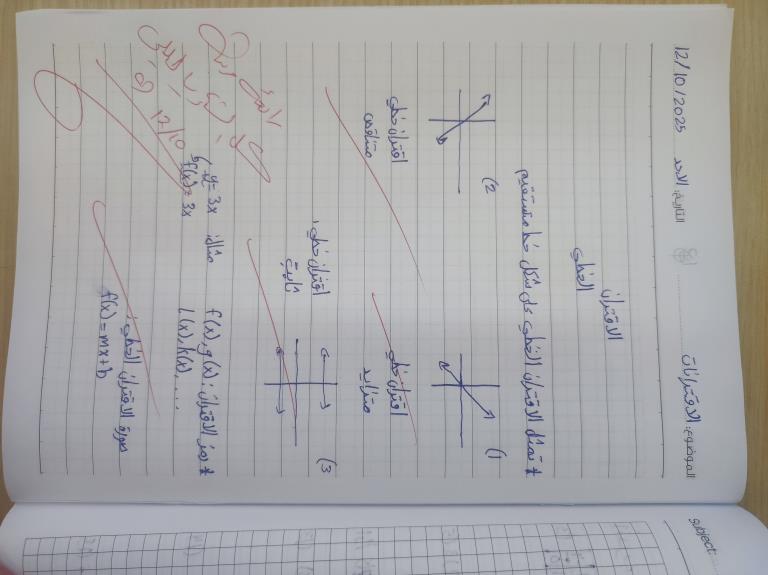 الموضوع: الاقترانات
التاريخ: الاحد 12/10/2025
الاقتران
الخطي
* تمثل الاقتران الخطي على شكل خط مستقيم
(1
(2
اقتران خطي
متزايد
اقتران خطي
متناقص
(3
اقتران خطي
ثابت
* رمز الاقتران: f(x), g(x)
l(x), k(x), ...
مثال: y = 3x
f(x) = 3x
صورة الاقتران الخطي:
f(x) = mx + b
12/10
subject: